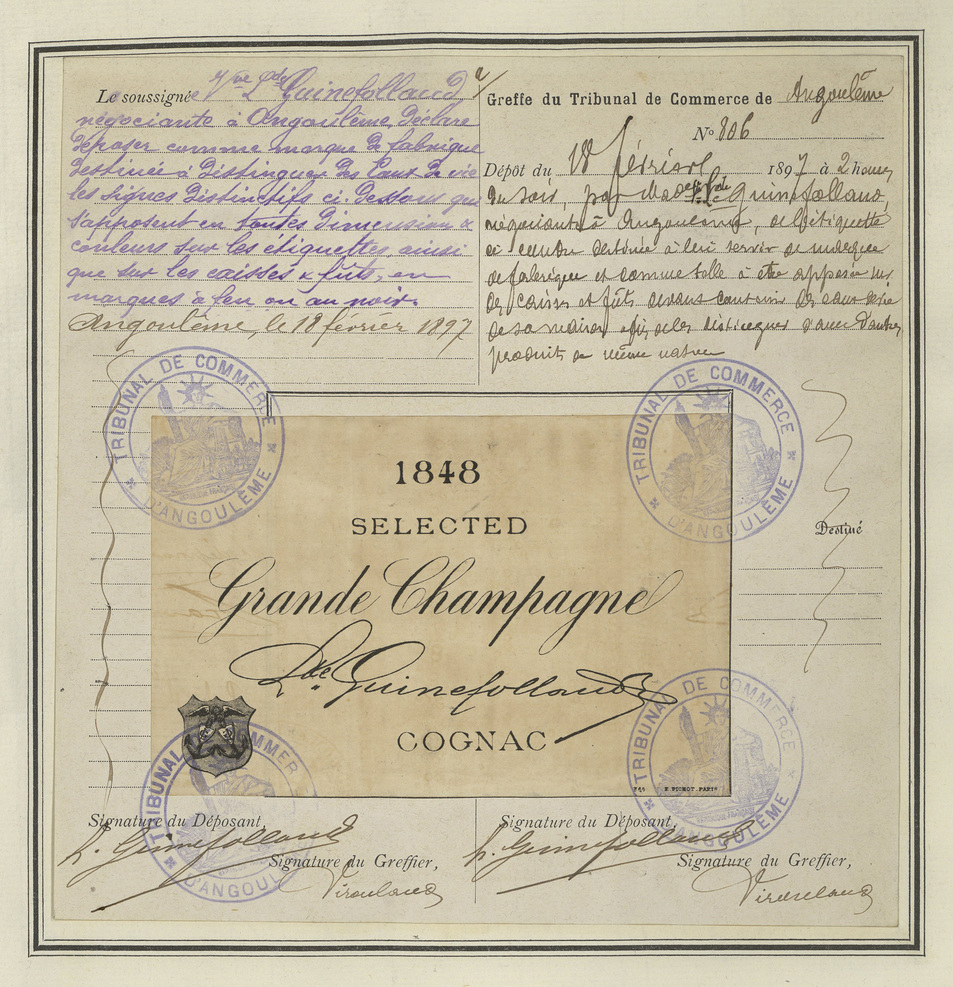 Le soussignée Vve Lde Guinefolland
négociante à Angoulême, déclare
déposer comme marque de fabrique
destinée à distinguer des Eaux de vie
les signes distinctifs ci-dessous qui
s'apposent en toutes dimensions &
couleurs sur les étiquettes, ainsi
que sur les caisses & fûts, en
marques à feu ou au noir.
Angoulême, le 18 février 1897
Greffe du Tribunal de Commerce de Angoulême
No 806
Dépôt du 18 février 1897 à 2 heures
du soir, par Guinefolland,
négociante à Angoulême, de l'étiquette
ci-contre destinée à lui servir de marque
de fabrique et comme telle à être apposée sur
des caisses et fûts devant contenir des eaux-de-vie
de sa maison afin de les distinguer d'avec d'autres
produits de même nature
TRIBUNAL DE COMMERCE D'ANGOULÊME
TRIBUNAL DE COMMERCE D'ANGOULÊME
1848
SELECTED
Destiné
Grande Champagne
Lde Guinefolland
COGNAC
TRIBUNAL DE COMMERCE D'ANGOULÊME
TRIBUNAL DE COMMERCE D'ANGOULÊME
Signature du Déposant,
L. Guinefolland
Signature du Greffier,
Signature du Déposant,
L. Guinefolland
Signature du Greffier,